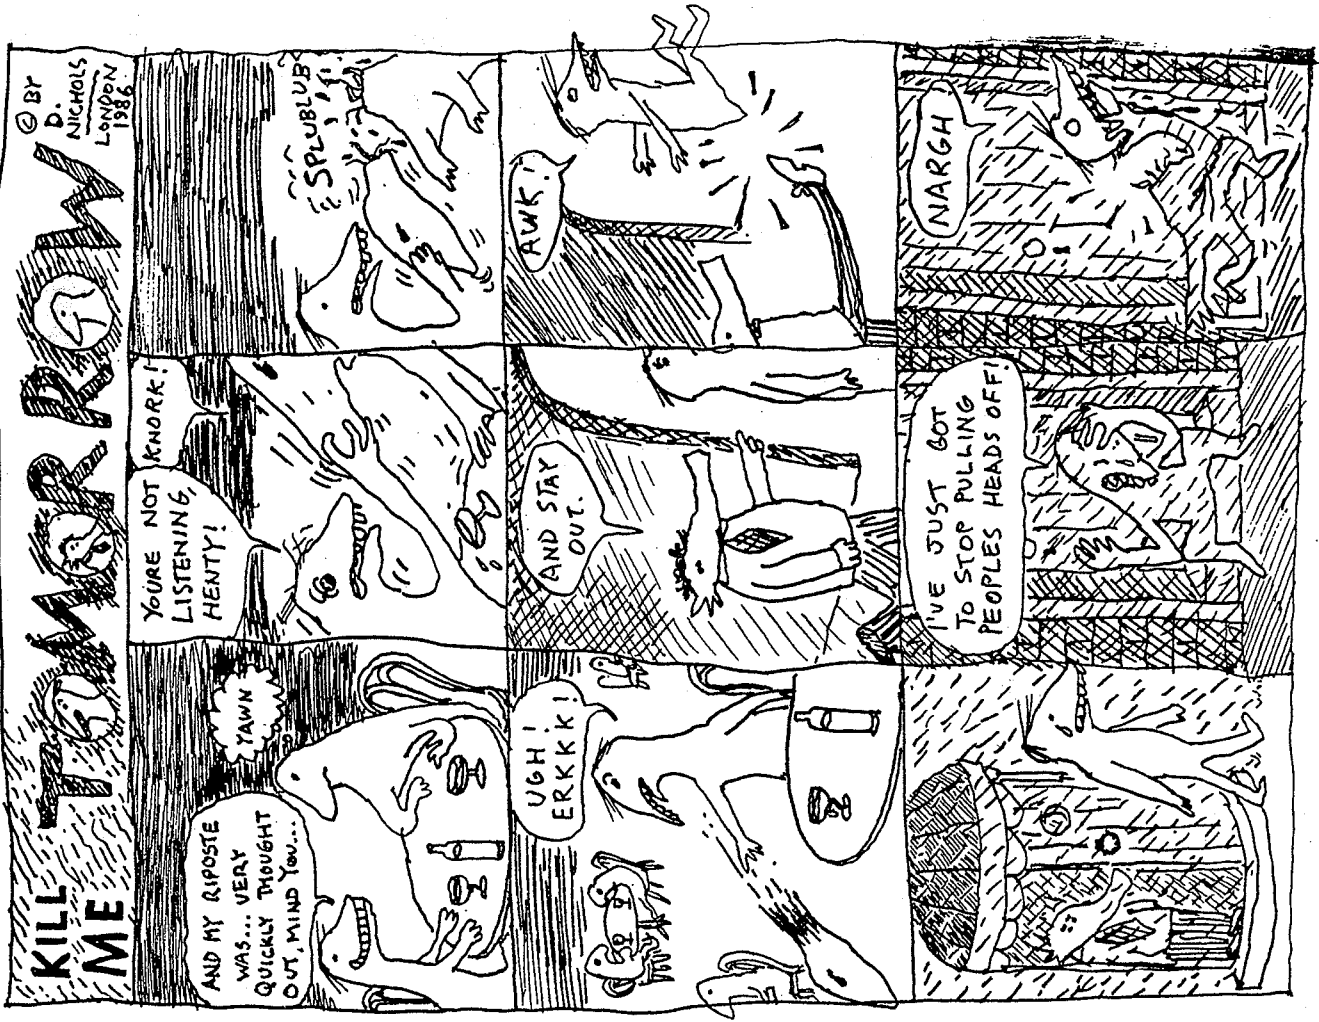 KILL
ME
TOMORROW
© BY
D.
NICHOLS
LONDON
1986
AND MY RIPOSTE
WAS... VERY
QUICKLY THOUGHT
OUT, MIND YOU...
YAWN
YOU'RE NOT
LISTENING,
HENTY!
KNORK!
SPLUBLUB
UGH!
ERKKK!
AND STAY
OUT.
AWK!
I'VE JUST GOT
TO STOP PULLING
PEOPLES HEADS OFF!
NARGH